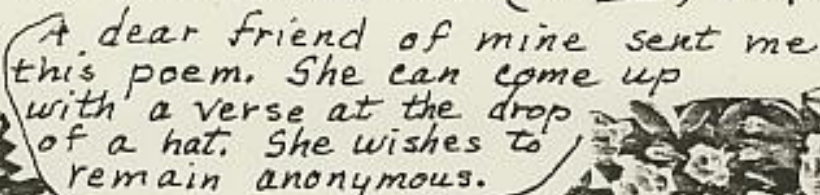 A dear friend of mine sent me
this poem. She can come up
with a verse at the drop
of a hat. She wishes to
remain anonymous.